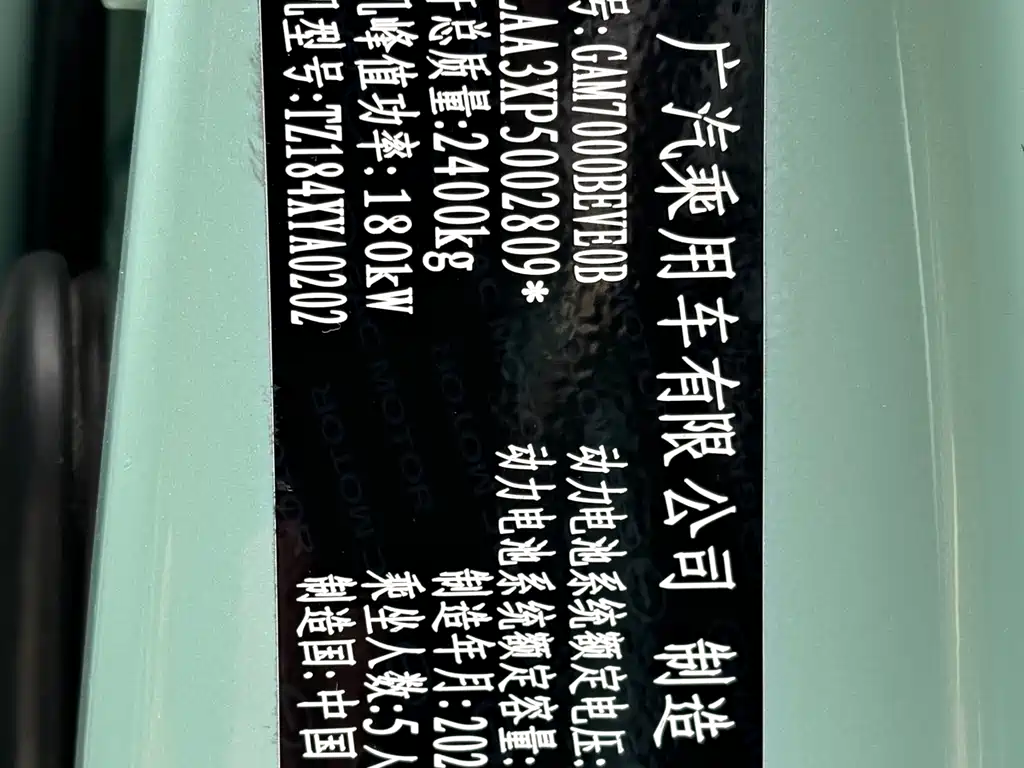 广汽乘用车有限公司 制造
号:GAM7000BEVE0B 动力电池系统额定电压:
AA3XP5002809* 动力电池系统额定容量:
总质量:2400kg 制造年月:202
峰值功率:180kW 乘坐人数:5人
型号:TZ184XYA0202 制造国:中国